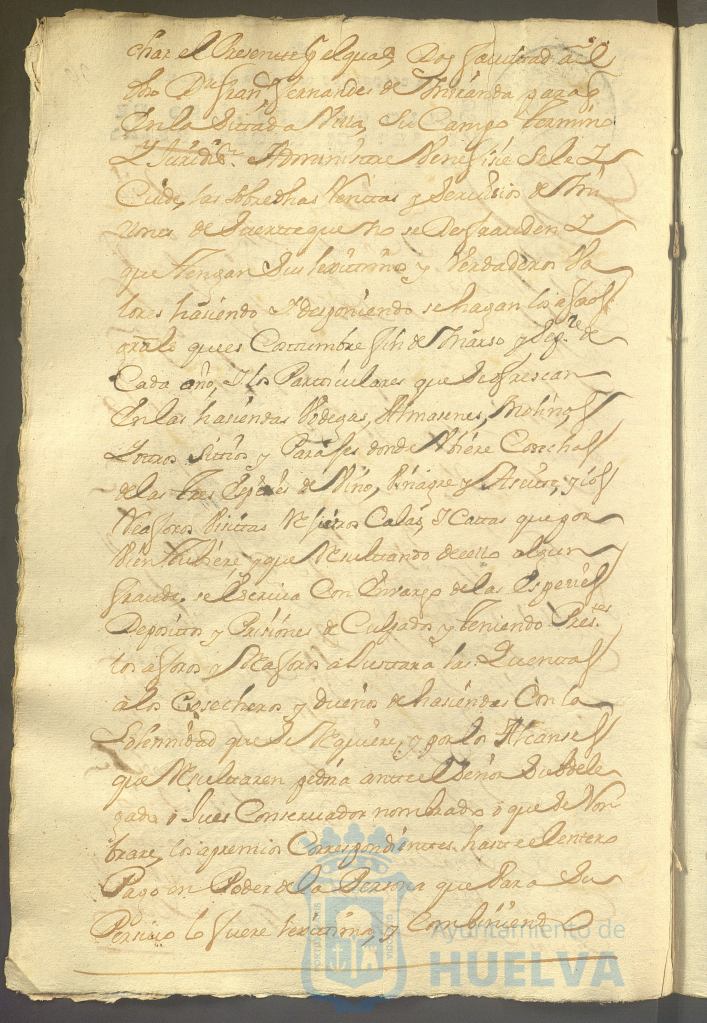 char el Presente, y el qual Doy facultad a el
dho Dn Fran.co Fernandes de Miranda para q
En la dicttada Villa, Su Campo termino
Y Juridi.on Administtre Venefisie Sele Y
Cuide, las sobredhas Renttas y Servisios de Mi
llones de Suertte que no se Defrauden Y
que tengan Sus lexittimos y Verdaderos Va
lores hasiendo Y desponiendo se hagan los afors
grales que es Costtumbre fin de Marso y Sep.re de
Cada año, Y los Partticulares que Se ofrescan
En las hasiendas Vodegas, Almasenes, Molinos
Y ottros Sittios y Parajes donde Vbiere Cosechas
de las tres Espesies de Vino, Vinagre y Aseitte, y los
Reaforos Visittas Rejistros Calas, Y Cattas que por
Vien tubiere y que Resulttando de ello algun
fraude se Escriva Con Envargo de las Espesies
Deposittos y Prisiones de Culpados y teniendo Pres.tes
los aforos y Reaforos a Justtara las Quenttas
a los Cosecheros y dueños de hasiendas Con la
Solemnidad que Se Requiere, y por los Alcanses
que Resulttaren pedira antte el Señor Subdele
gado o Jues Conservador nombrado o que se Nom
brare, los apremios Correspondienttes hastta el entero
Pago en Poder de la Persona que Para Su
Persivo lo fuere lexittima, y Combiniendo
Ayuntamiento de
HUELVA